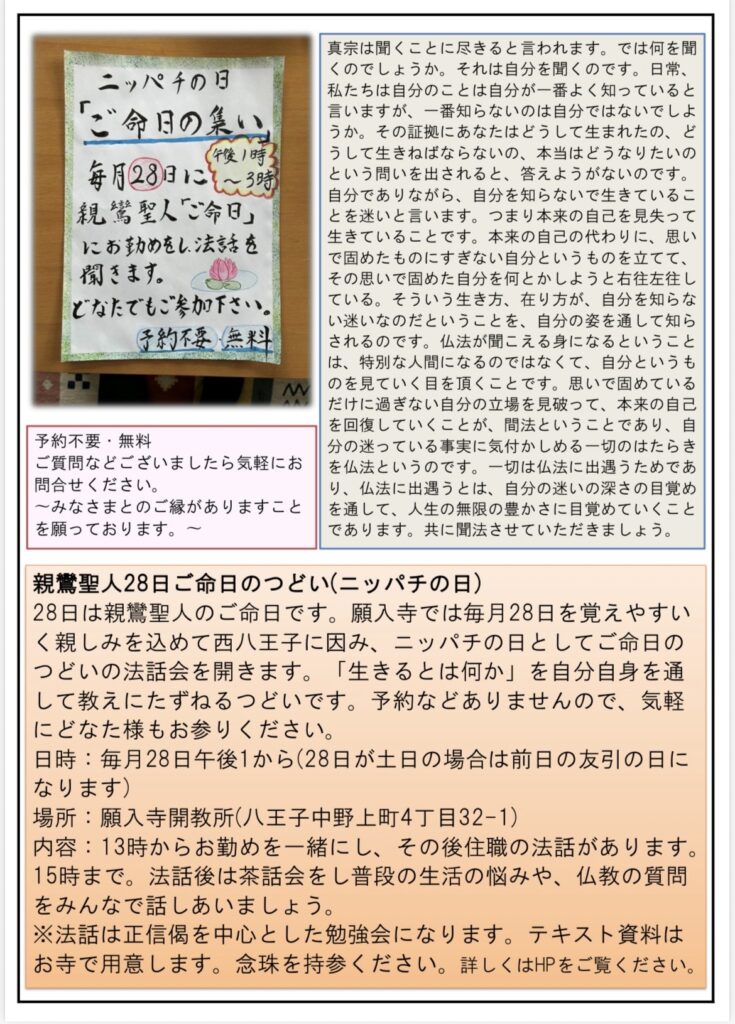 ニッパチの日
「ご命日の集い」
午後1時
〜3時
毎月28日に
親鸞聖人「ご命日」
にお勤めをし法話を
聞きます。
どなたでもご参加下さい。
予約不要・無料
予約不要・無料
ご質問などございましたら気軽にお
問合せください。
～みなさまとのご縁がありますこと
を願っております。～
真宗は聞くことに尽きると言われます。では何を聞
くのでしょうか。それは自分を聞くのです。日常、
私たちは自分のことは自分が一番よく知っていると
言いますが、一番知らないのは自分ではないでしょ
うか。その証拠にあなたはどうして生まれたの、ど
うして生きねばならないの、本当はどうなりたいの
という問いを出されると、答えようがないのです。
自分でありながら、自分を知らないで生きているこ
とを迷いと言います。つまり本来の自己を見失って
生きていることです。本来の自己の代わりに、思い
で固めたものにすぎない自分というものを立てて、
その思いで固めた自分を何とかしようと右往左往し
ている。そういう生き方、在り方が、自分を知らな
い迷いなのだということを、自分の姿を通して知ら
されるのです。仏法が聞こえる身になるということ
は、特別な人間になるのではなくて、自分というも
のを見ていく目を頂くことです。思いで固めている
だけに過ぎない自分の立場を見破って、本来の自己
を回復していくことが、聞法ということであり、自
分の迷っている事実に気付かしめる一切のはたらき
を仏法というのです。一切は仏法に出遇うためであ
り、仏法に出遇うとは、自分の迷いの深さの目覚め
を通して、人生の無限の豊かさに目覚めていくこと
であります。共に聞法させていただきましょう。
親鸞聖人28日ご命日のつどい(ニッパチの日)
28日は親鸞聖人のご命日です。願入寺では毎月28日を覚えやすい
く親しみを込めて西八王子に因み、ニッパチの日としてご命日の
つどいの法話会を開きます。「生きるとは何か」を自分自身を通
して教えにたずねるつどいです。予約などありませんので、気軽
にどなた様もお参りください。
日時：毎月28日午後1から(28日が土日の場合は前日の友引の日に
なります)
場所：願入寺開教所(八王子中野上町4丁目32-1)
内容：13時からお勤めを一緒にし、その後住職の法話があります。
15時まで。法話後は茶話会をし普段の生活の悩みや、仏教の質問
をみんなで話しあいましょう。
※法話は正信偈を中心とした勉強会になります。テキスト資料は
お寺で用意します。念珠を持参ください。詳しくはHPをご覧ください。